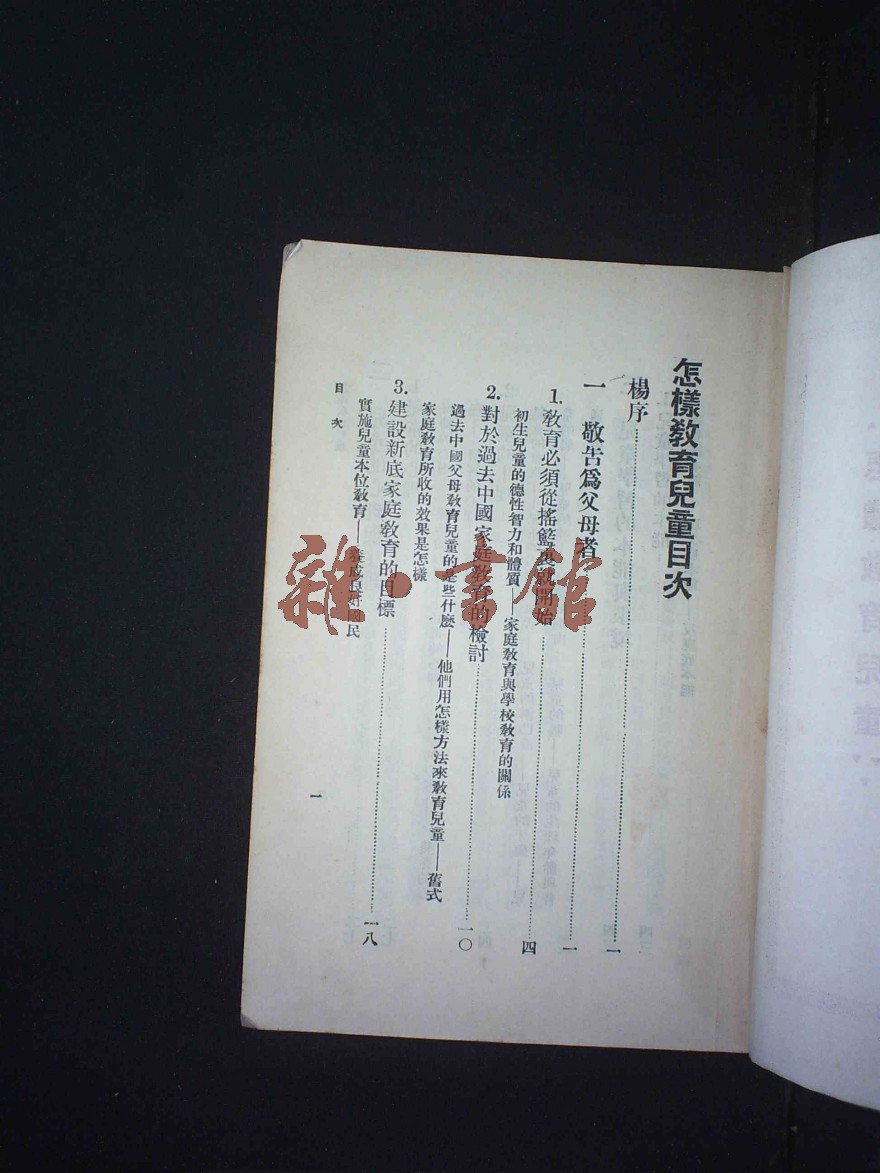 怎樣敎育兒童目次
楊序……一
一 敬吿爲父母者……一
1. 敎育必須從搖籃裏就開始……四
初生兒童的德性智力和體質——家庭敎育與學校敎育的關係
2. 對於過去中國家庭敎育的檢討……一〇
過去中國父母敎育兒童的是些什麼——他們用怎樣方法來敎育兒童——舊式
家庭敎育所收的效果是怎樣
3. 建設新底家庭敎育的目標……一八
實施兒童本位敎育——養成良好國民
目次
一
雜·書館